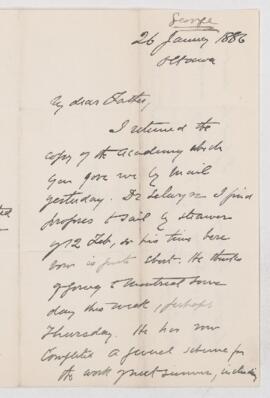 George
26 January 1886
Ottawa
My dear Father,
I returned the
copy of the Academy which
you gave me by mail
yesterday. Dr Selwyn I find
proposes to sail by steamer
of 12 Feb, so his time here
now is quite short. He thinks
of going to Montreal some
day this week, perhaps
Thursday. He has now
completed a general scheme for
the work next summer, including